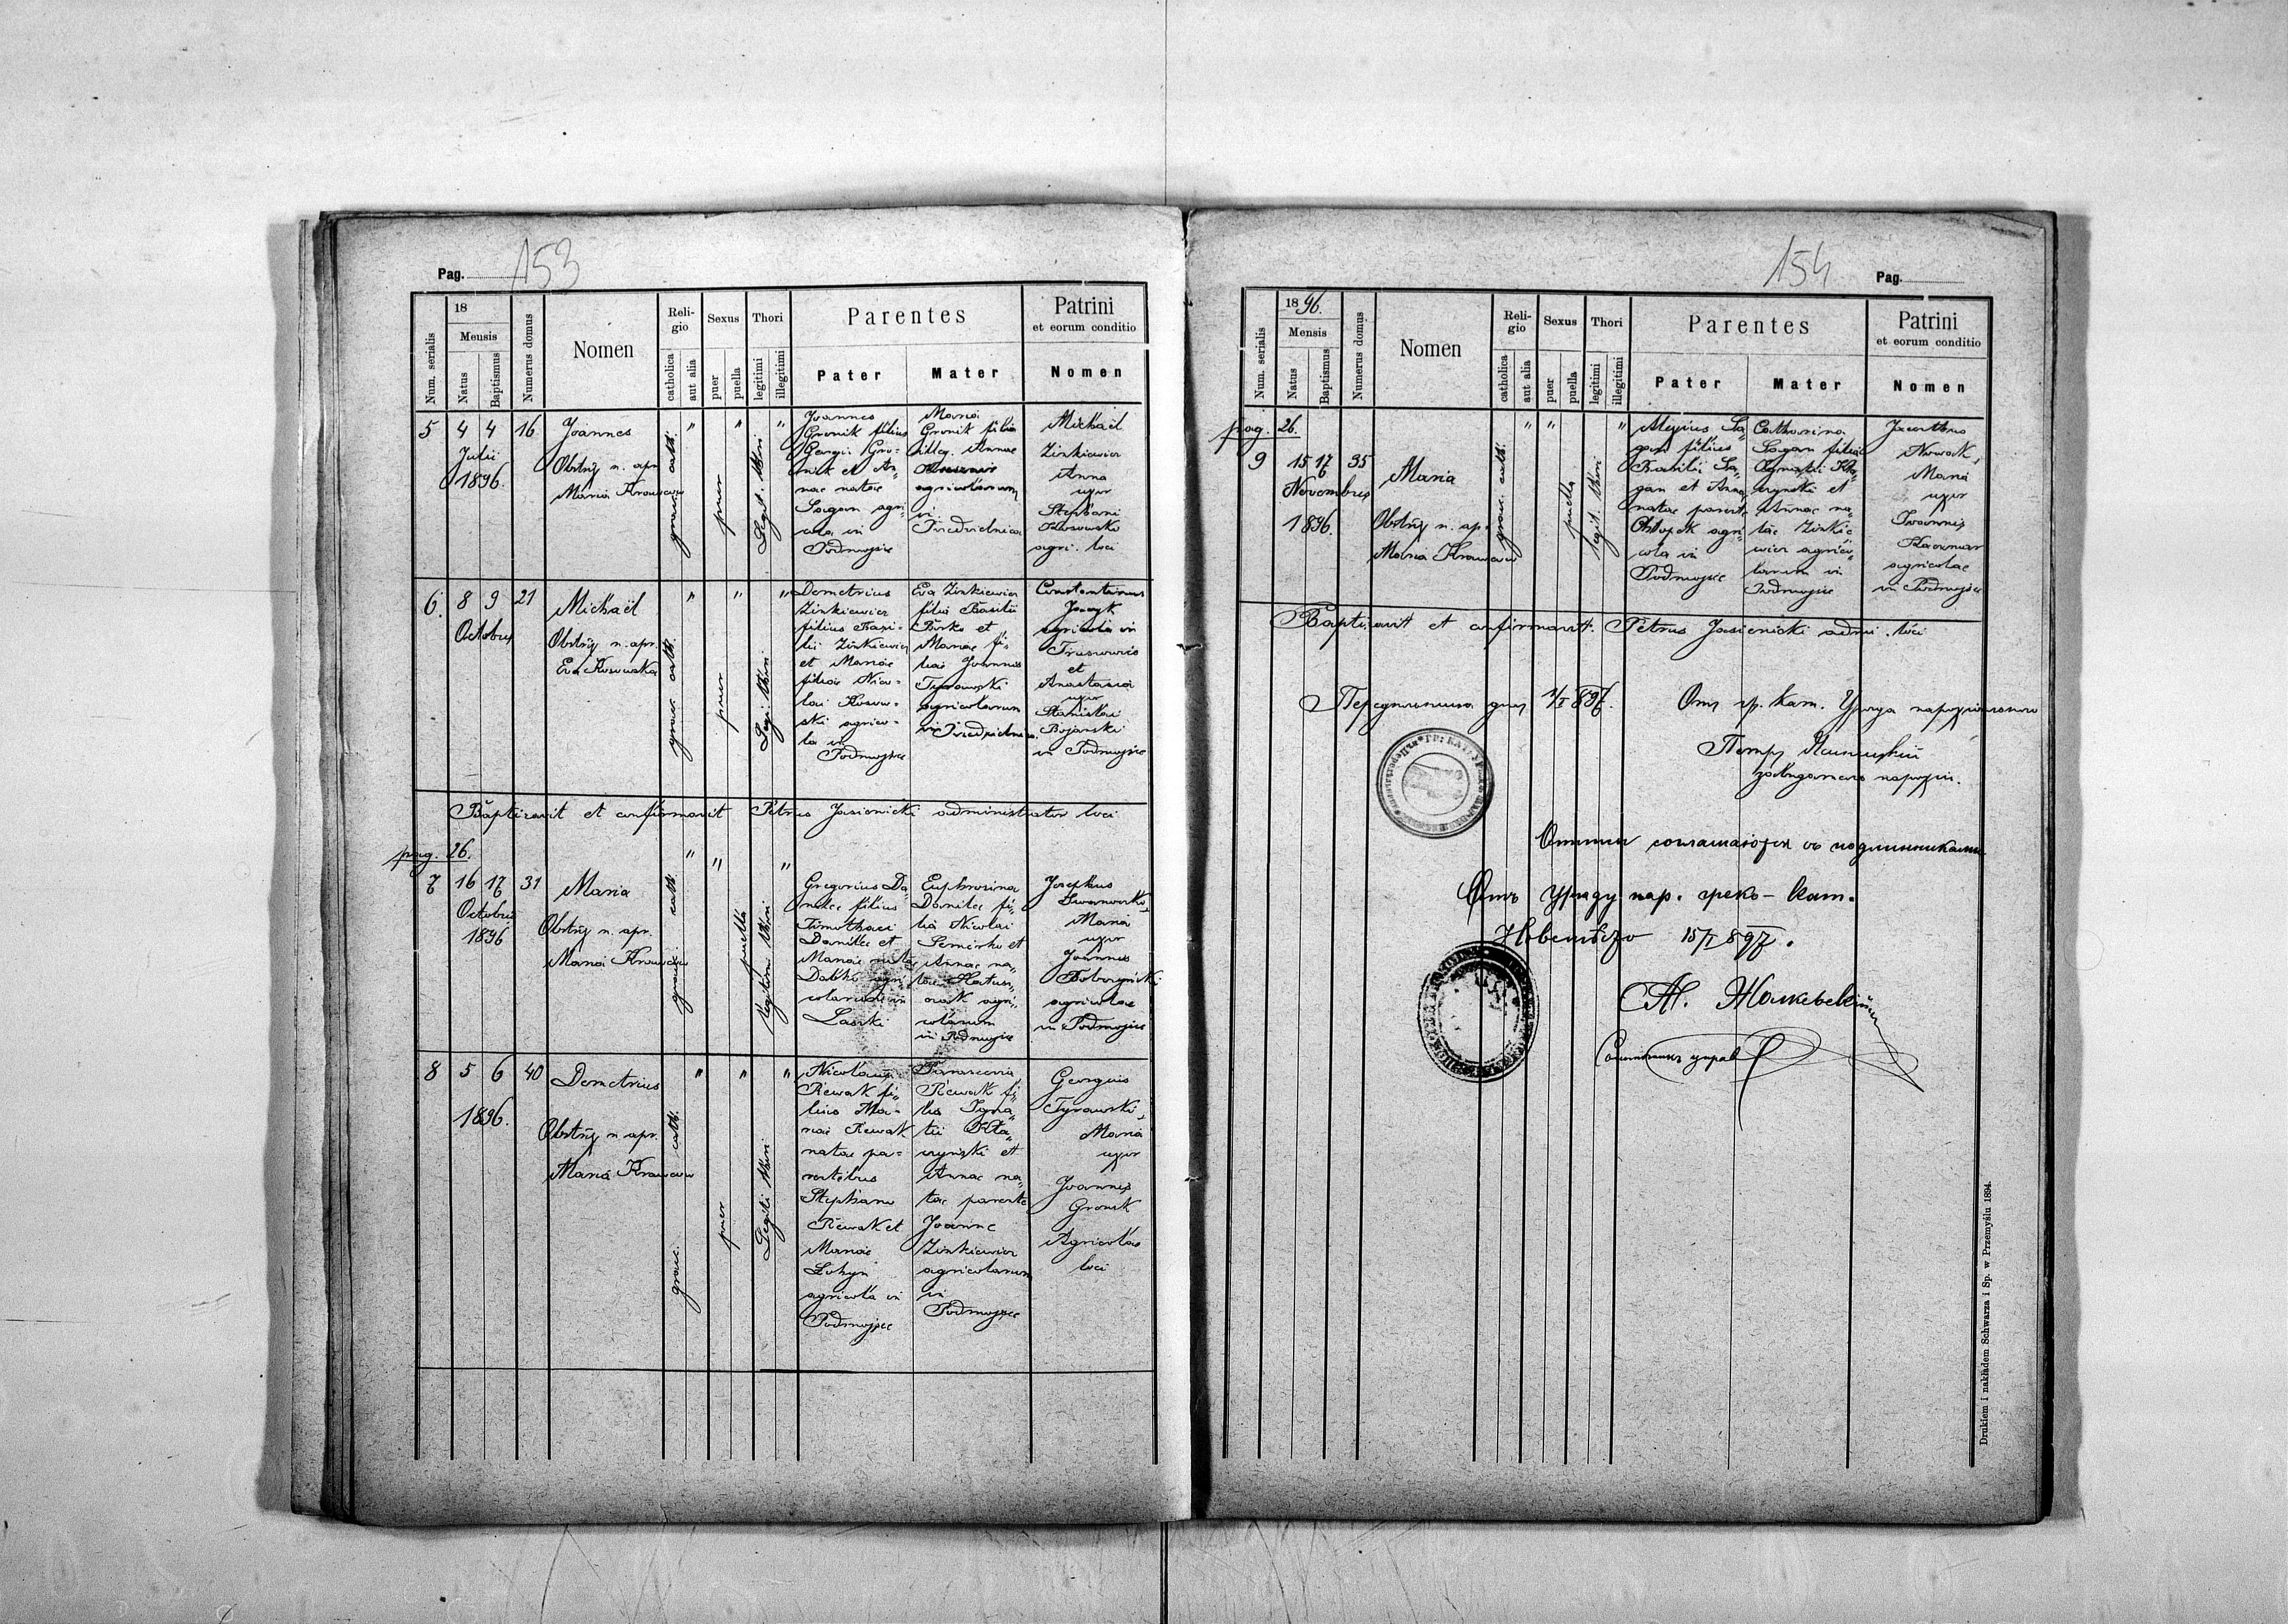 153
Pag.
Num. serialis
18
Mensis
Natus
Baptismus
Numerus domus
Nomen
Religio
catholica
aut alia
Sexus
puer
puella
Thori
legitimi
illegitimi
Parentes
Pater
Mater
Patrini
et eorum conditio
Nomen
5
4 4
Julii
1896.
16
Joannes
Obstrx n. apr.
Maria
graeci cath.
puer
Legit. thori
Joannes
Gronik filius
Georgii Gro-
nik et An-
nae natae
Sagan agri-
cola in
Podmojsce
Maria
Gronik filia
illeg. Annae
agricolarum
in
Michaël
Zinkiewicz
Anna
uxor
Stephani
Kosowski
agri. loci
6.
8 9
Octobris
21
Michaël
Obstrx n. apr.
Eva Kosowska
graeci cath.
puer
Legi. thori
Demetrius
Zinkiewicz
filius Basi-
lii Zinkiewicz
et Mariae
filiae Nico-
lai Kosow-
ski agrico-
la in
Podmojsce
Eva Zinkiewicz
filia Basilii
Birko et
Mariae fi-
liae Joannis
Tyrawski
agricolarum
in
Constantinus
agricola in
et
Anastasia
uxor
Stanislai
Bojarski
in Podmojsce
Baptizavit et confirmavit Petrus Jasienicki administrator loci
pag. 26.
7
16 17
Octobris
1896
31
Maria
Obstrx n. apr.
Maria
graeci cath.
puella
legitimi thori
Gregorius Da-
nilec filius
Timothaei
Danilec et
Mariae natae
Laszki
Euphrosina
Danilec fi-
lia Nicolai
Semirko et
Annae na-
agri-
colarum
in Podmojsce
Josephus
Maria
uxor
Joannis
agricolae
in Podmojsce
8
5 6
1896.
40
Demetrius
Obstrx n. apr.
Maria
graec. cath.
puer
Legiti thori
Nicolaus
Rewak fi-
lius Ma-
riae Rewak
natae pa-
rentibus
Stephano
Rewak et
Mariae
agricola in
Podmojsce
Parascevia
Rewak fi-
lia Igna-
tii Kła-
czyński et
Annae na-
tae parente
Joanne
Zinkiewicz
agricolarum
in
Podmojsce
Georgius
Tyrawski
Maria
uxor
Joannis
Gronik
Agricolae
loci
154
Pag.
Num. serialis
1896.
Mensis
Natus
Baptismus
Numerus domus
Nomen
Religio
catholica
aut alia
Sexus
puer
puella
Thori
legitimi
illegitimi
Parentes
Pater
Mater
Patrini
et eorum conditio
Nomen
pag. 26.
9
15 17
Novembris
1896.
35
Maria
Obstrx n. ap.
Maria
graec. cath.
puella
legit. thori
Alexius Sa-
gan filius
Basilii Sa-
gan et Anna
natae parente
agri-
cola in
Podmojsce
Catharina
Sagan filia
Ignatii Kła-
czyński et
Annae na-
tae Zinkie-
wicz agrico-
larum in
Podmojsce
Nowak
Maria
uxor
Joannis
Kaczmar
agricolae
in Podmojsce
Baptizavit et confirmavit. Petrus Jasienicki admi. loci
1/I 897.
Отъ гр. кат. Уряда парохіяльного
Петръ Ясеницкій
завидатель парохіи.
соглашаются съ подлинниками
Отъ уряду пар. греко-кат.
15/I 897.
Drukiem i nakładem Schwarza i Sp. w Przemyślu 1894.